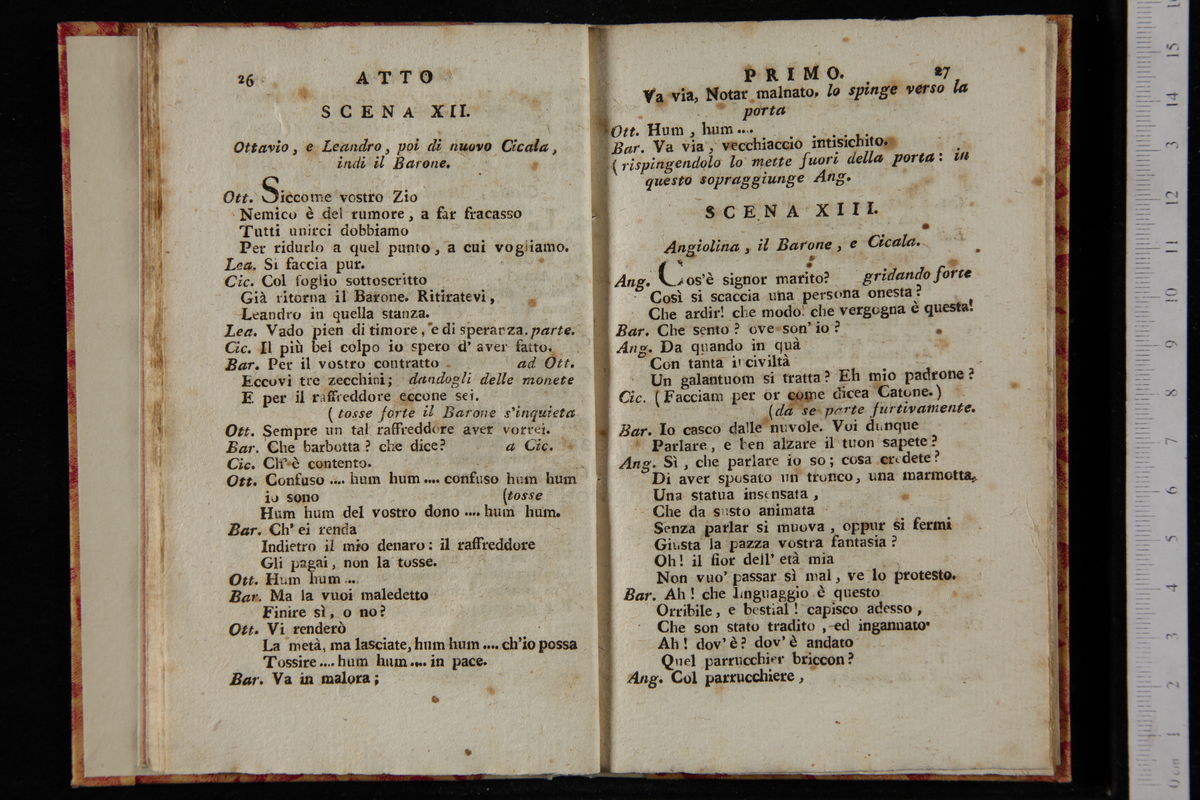 26 ATTO
SCENA XII.
Ottavio, e Leandro, poi di nuovo Cicala,
indi il Barone.
Ott. Siccome vostro Zio
Nemico è del rumore, a far fracasso
Tutti unirci dobbiamo
Per ridurlo a quel punto, a cui vogliamo.
Lea. Si faccia pur.
Cic. Col foglio sottoscritto
Già ritorna il Barone. Ritiratevi,
Leandro in quella stanza.
Lea. Vado pien di timore, e di speranza. parte.
Cic. Il più bel colpo io spero d' aver fatto.
Bar. Per il vostro contratto ad Ott.
Eccovi tre zecchini; dandogli delle monete
E per il raffreddore eccone sei.
( tosse forte il Barone s'inquieta
Ott. Sempre un tal raffreddore aver vorrei.
Bar. Che barbotta? che dice? a Cic.
Cic. Ch' è contento.
Ott. Confuso .... hum hum .... confuso hum hum
io sono (tosse
Hum hum del vostro dono .... hum hum.
Bar. Ch' ei renda
Indietro il mio denaro: il raffreddore
Gli pagai, non la tosse.
Ott. Hum hum ...
Bar. Ma la vuoi maledetto
Finire sì, o no?
Ott. Vi renderò
La metà, ma lasciate, hum hum .... ch'io possa
Tossire .... hum hum .... in pace.
Bar. Va in malora;
PRIMO. 27
Va via, Notar malnato. lo spinge verso la
porta
Ott. Hum, hum ....
Bar. Va via, vecchiaccio intisichito.
( rispingendolo lo mette fuori della porta: in
questo sopraggiunge Ang.
SCENA XIII.
Angiolina, il Barone, e Cicala.
Ang. Cos'è signor marito? gridando forte
Così si scaccia una persona onesta?
Che ardir! che modo! che vergogna è questa!
Bar. Che sento? ove son' io?
Ang. Da quando in quà
Con tanta inciviltà
Un galantuom si tratta? Eh mio padrone?
Cic. (Facciam per or come dicea Catone.)
(da se parte furtivamente.
Bar. Io casco dalle nuvole. Voi dunque
Parlare, e ben alzare il tuon sapete?
Ang. Sì, che parlare io so; cosa credete?
Di aver sposato un tronco, una marmotta,
Una statua insensata,
Che da susto animata
Senza parlar si muova, oppur si fermi
Giusta la pazza vostra fantasia?
Oh! il fior dell' età mia
Non vuo' passar sì mal, ve lo protesto.
Bar. Ah! che linguaggio è questo
Orribile, e bestial! capisco adesso,
Che son stato tradito, ed ingannato.
Ah! dov' è? dov' è andato
Quel parrucchier briccon?
Ang. Col parrucchiere,